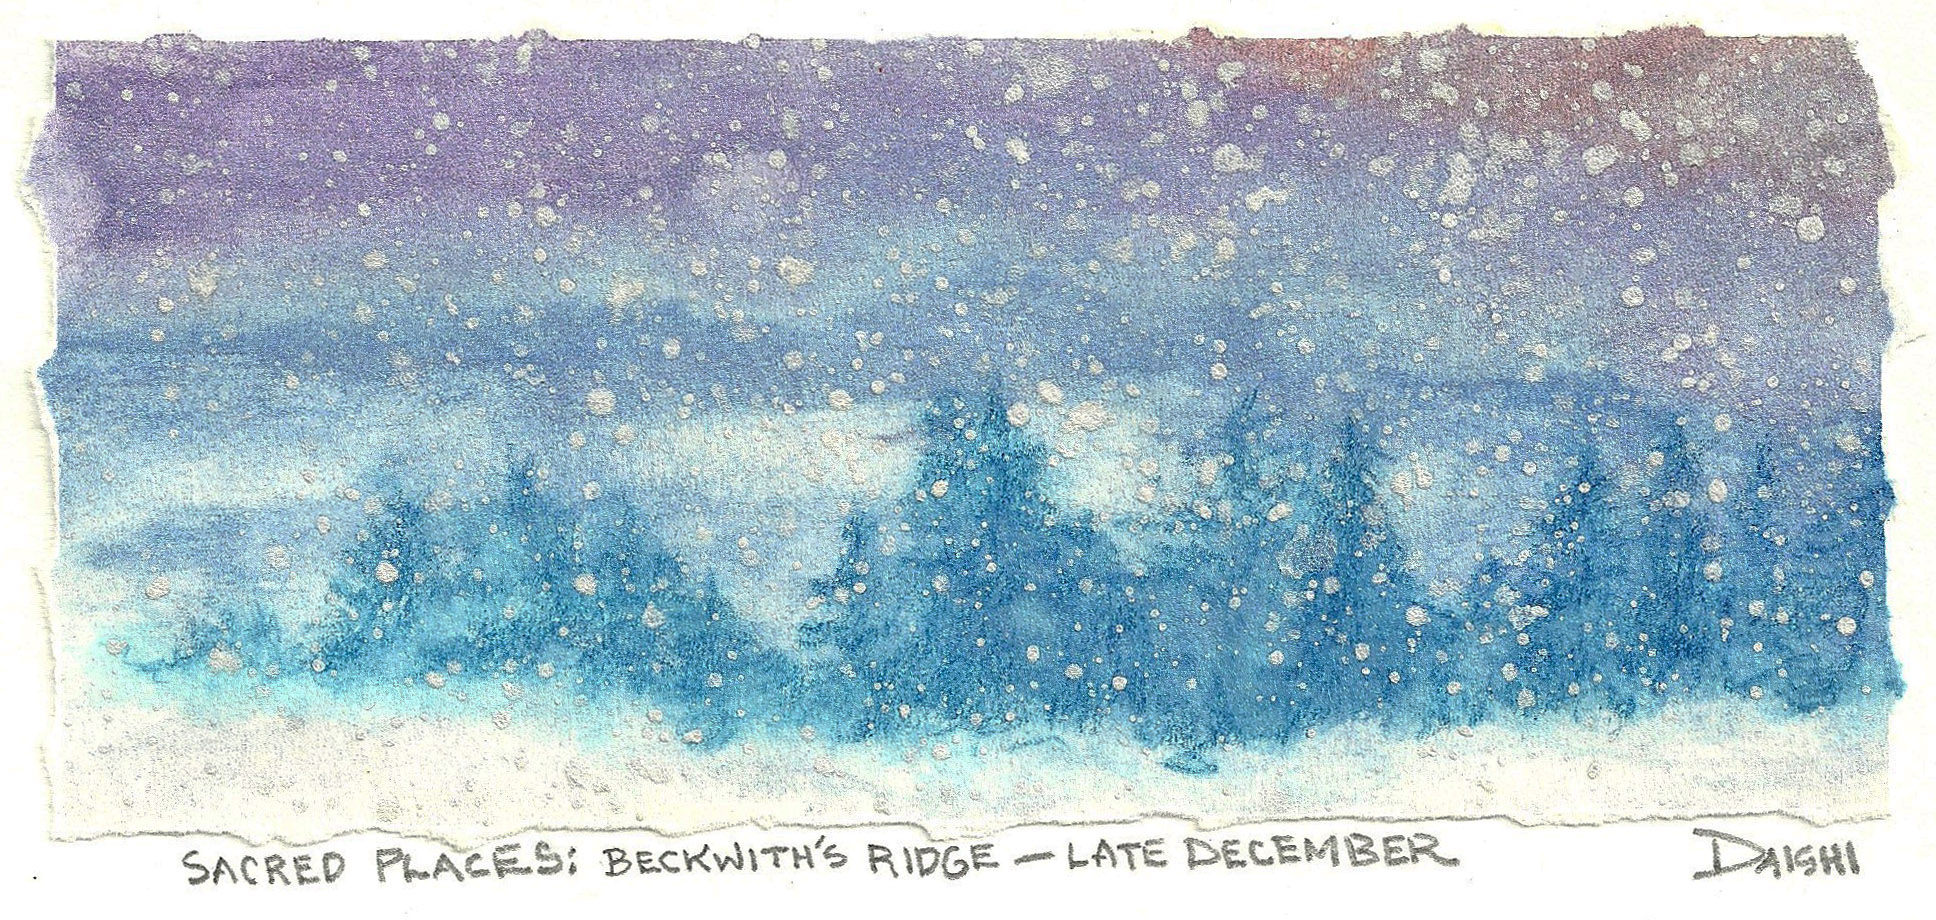 SACRED PLACES: BECKWITH'S RIDGE — LATE DECEMBER
DAISHI